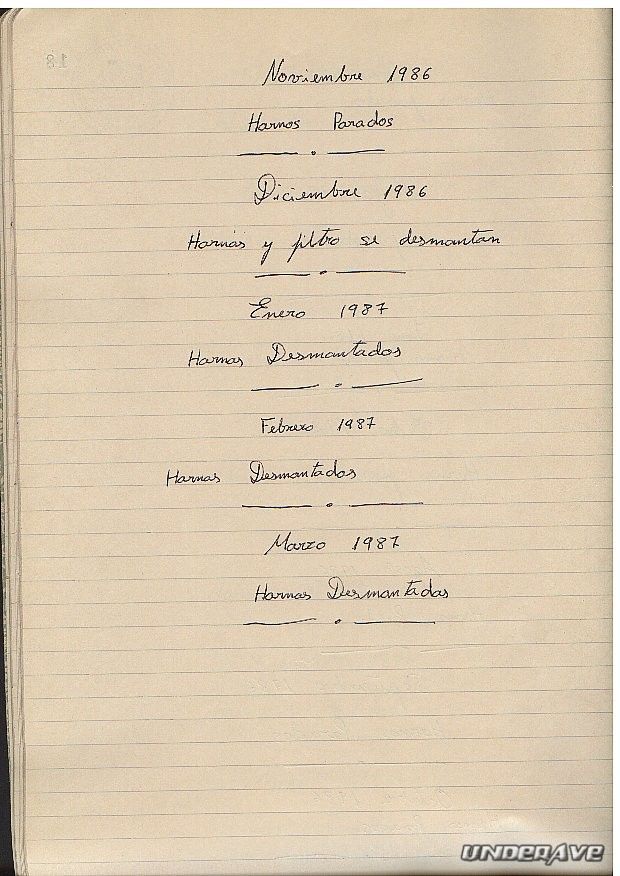 Noviembre 1986
Harnos Parados
Diciembre 1986
Harnos y filtro se desmantan
Enero 1987
Harnos Desmantados
Febrero 1987
Harnos Desmantados
Marzo 1987
Harnos Desmantados
UNDERAVE